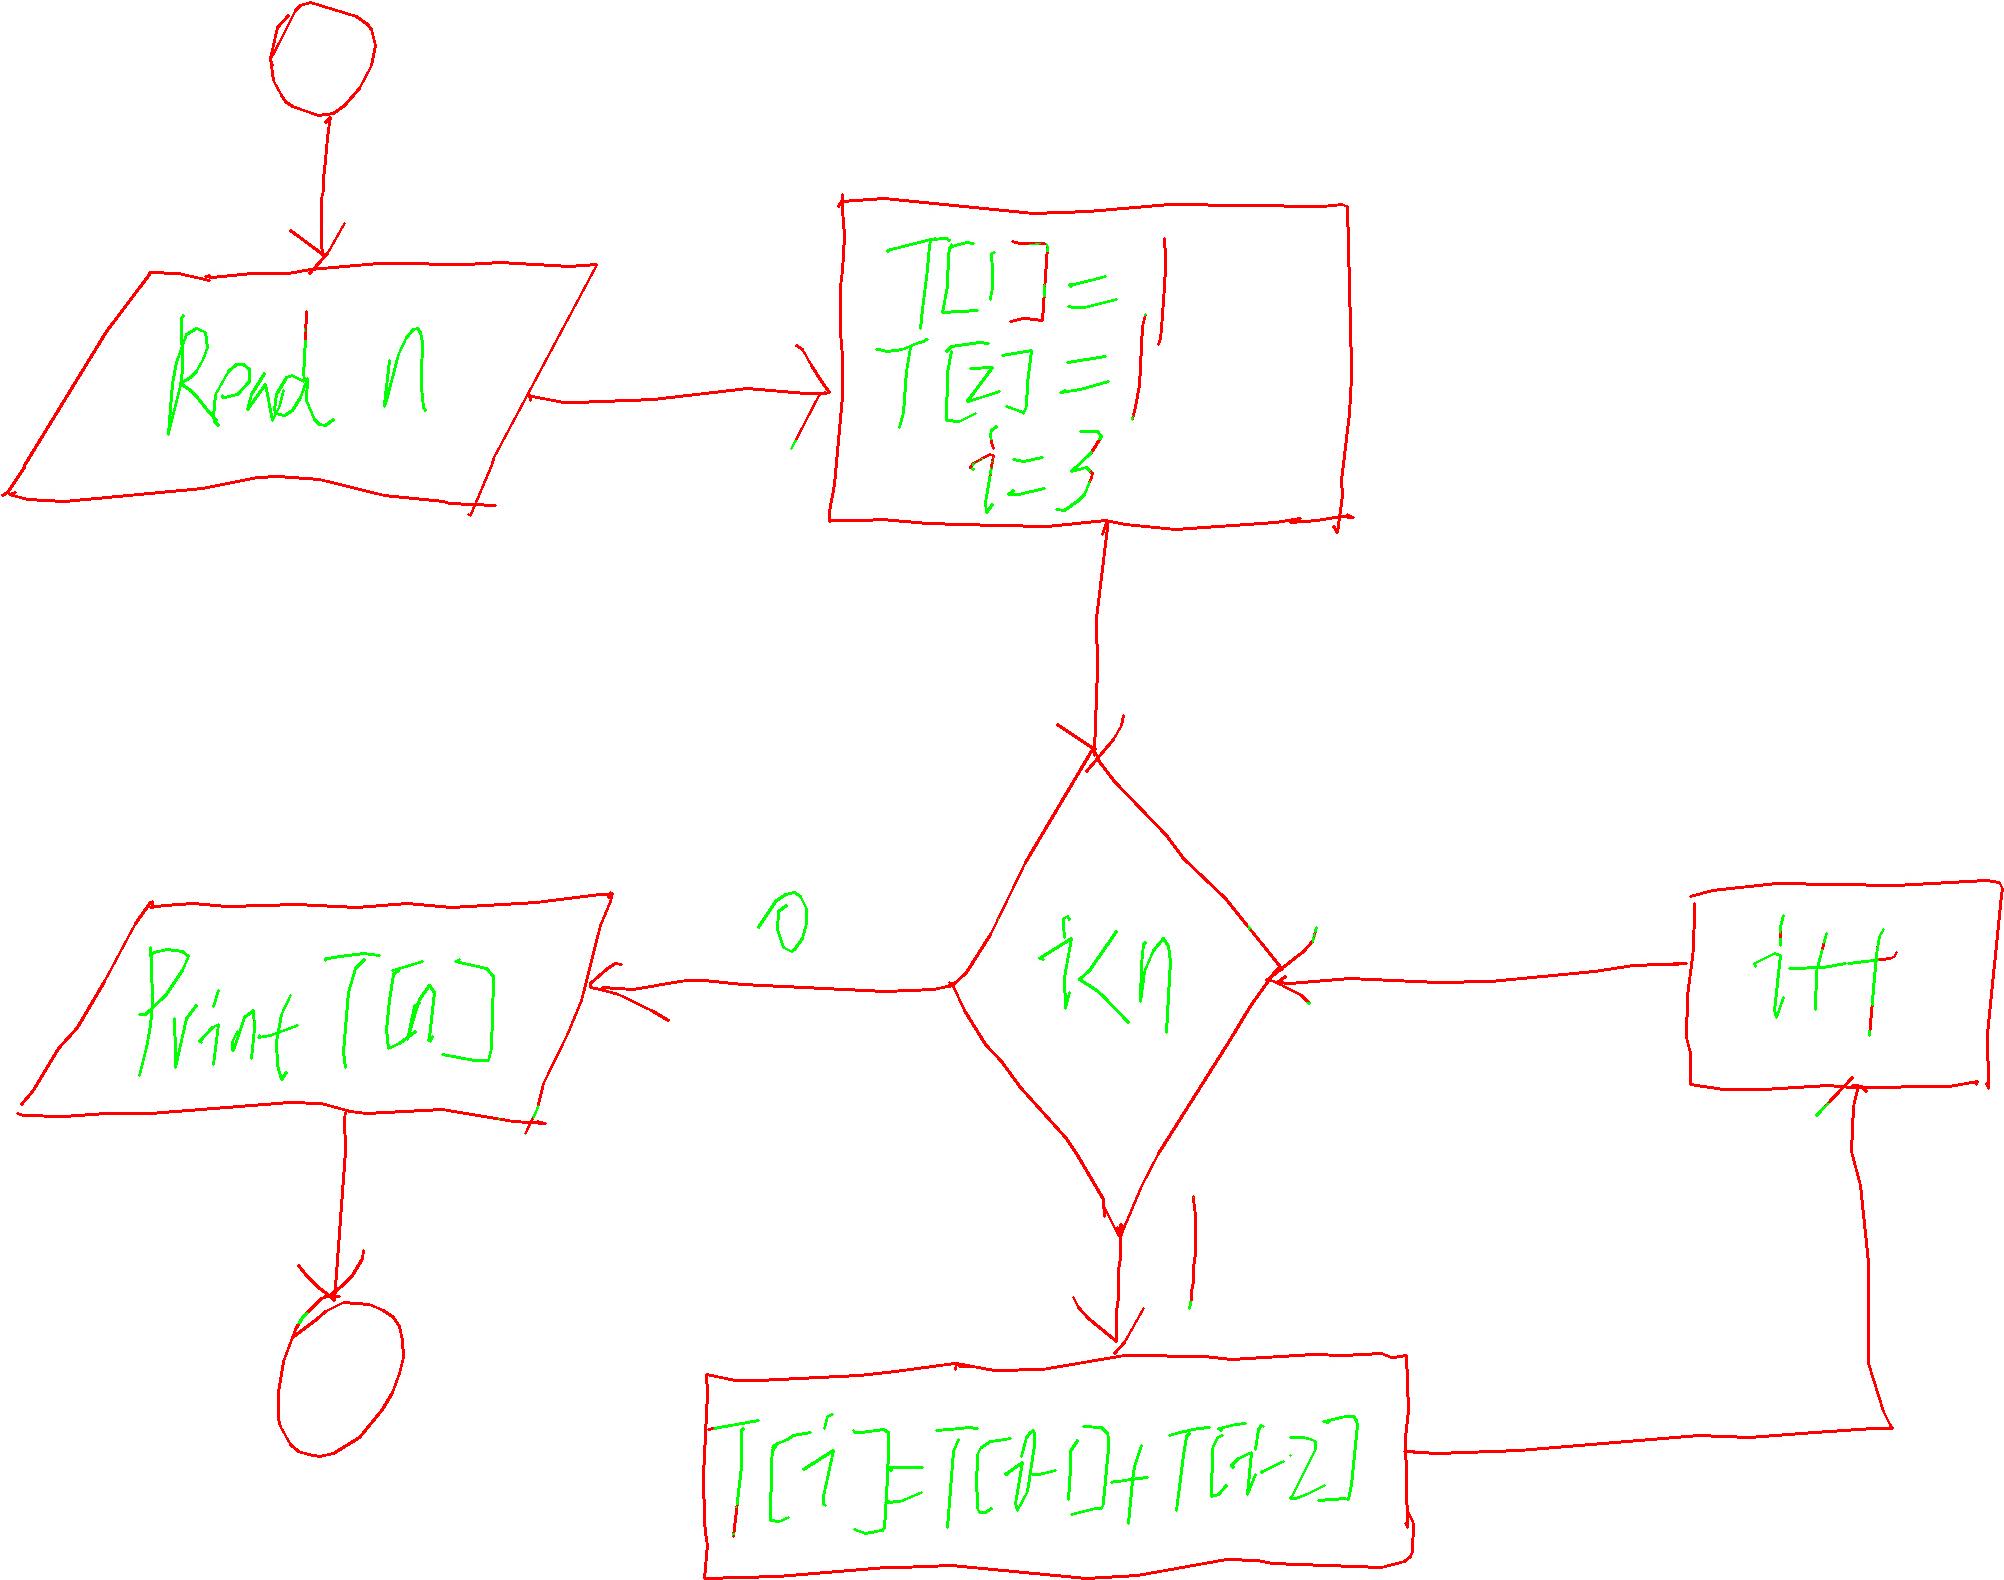 Read n
T[1]=1
T[2]=1
i=3
i<n
0
1
i++
Print T[n]
T[i]=T[i-1]+T[i-2]